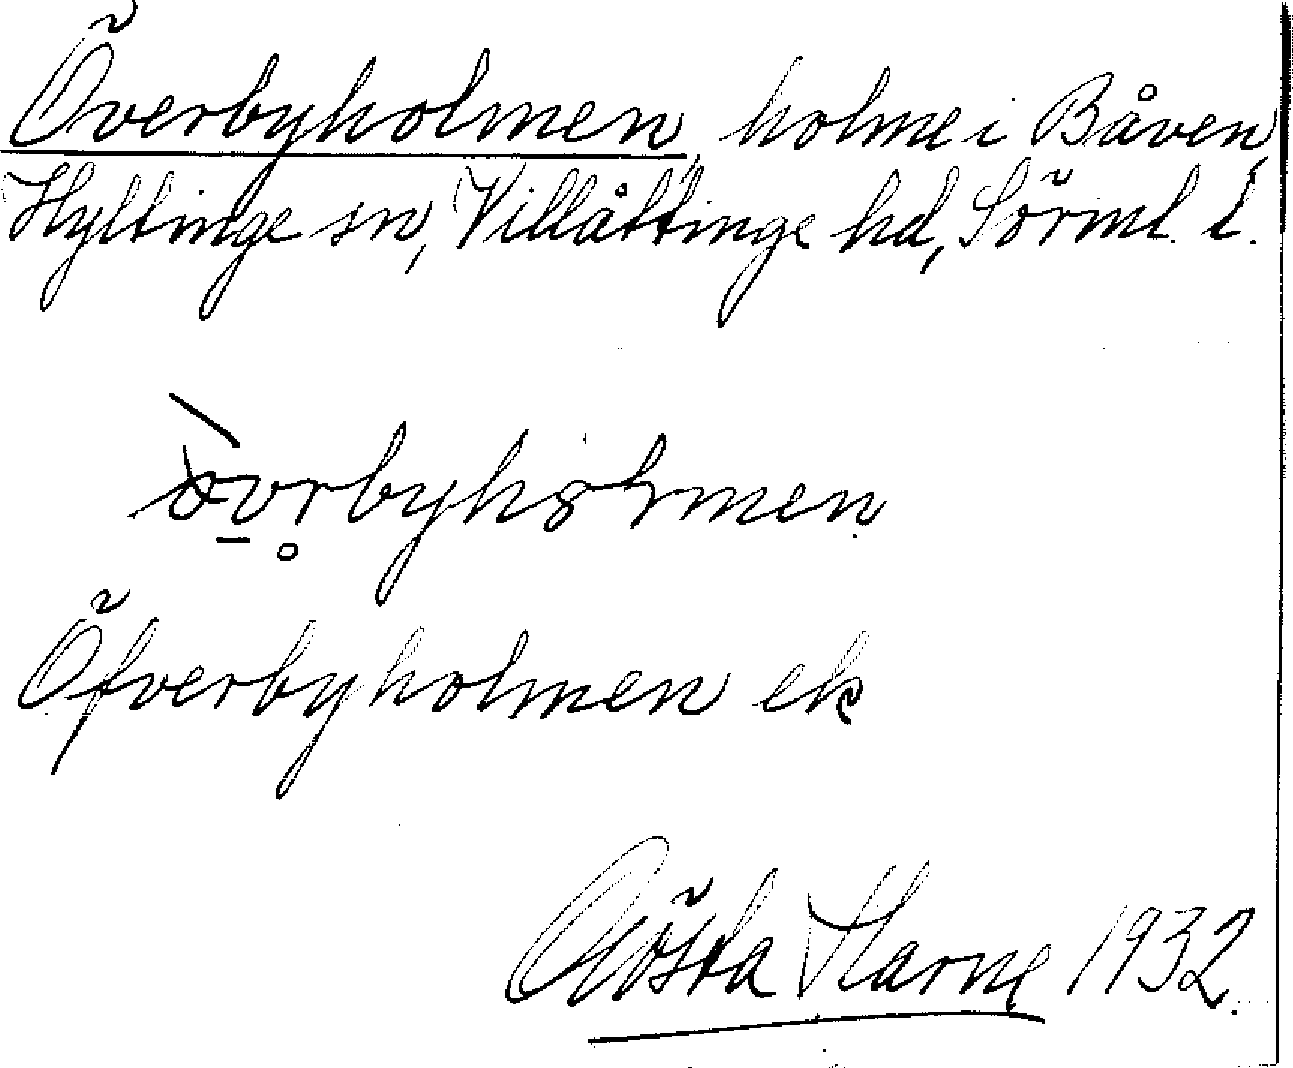 Överbyholmen, holme i Båven,
Hyltinge sn, Villåttinge hd, Sörml. l.
Öfverbyholmen ek
Gösta Harne 1932.